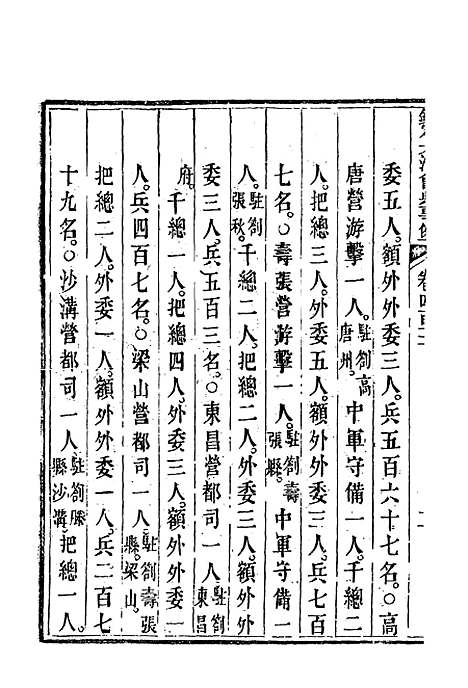 委五人。額外外委三人。兵五百六十七名。○高
唐營游擊一人。駐劄高唐州。中軍守備一人。千總二
人。把總三人。外委五人。額外外委三人。兵七百
七名。○壽張營游擊一人。駐劄壽張縣。中軍守備一
人。駐劄張秋。千總二人。把總二人。外委三人。額外外
委三人。兵五百三名。○東昌營都司一人。駐劄東昌
府。千總一人。把總四人。外委三人。額外外委一
人。兵四百七名。○梁山營都司一人。駐劄壽張縣梁山。
把總二人。外委一人。額外外委一人。兵二百七
十九名。○沙溝營都司一人。駐劄滕縣沙溝。把總一人。